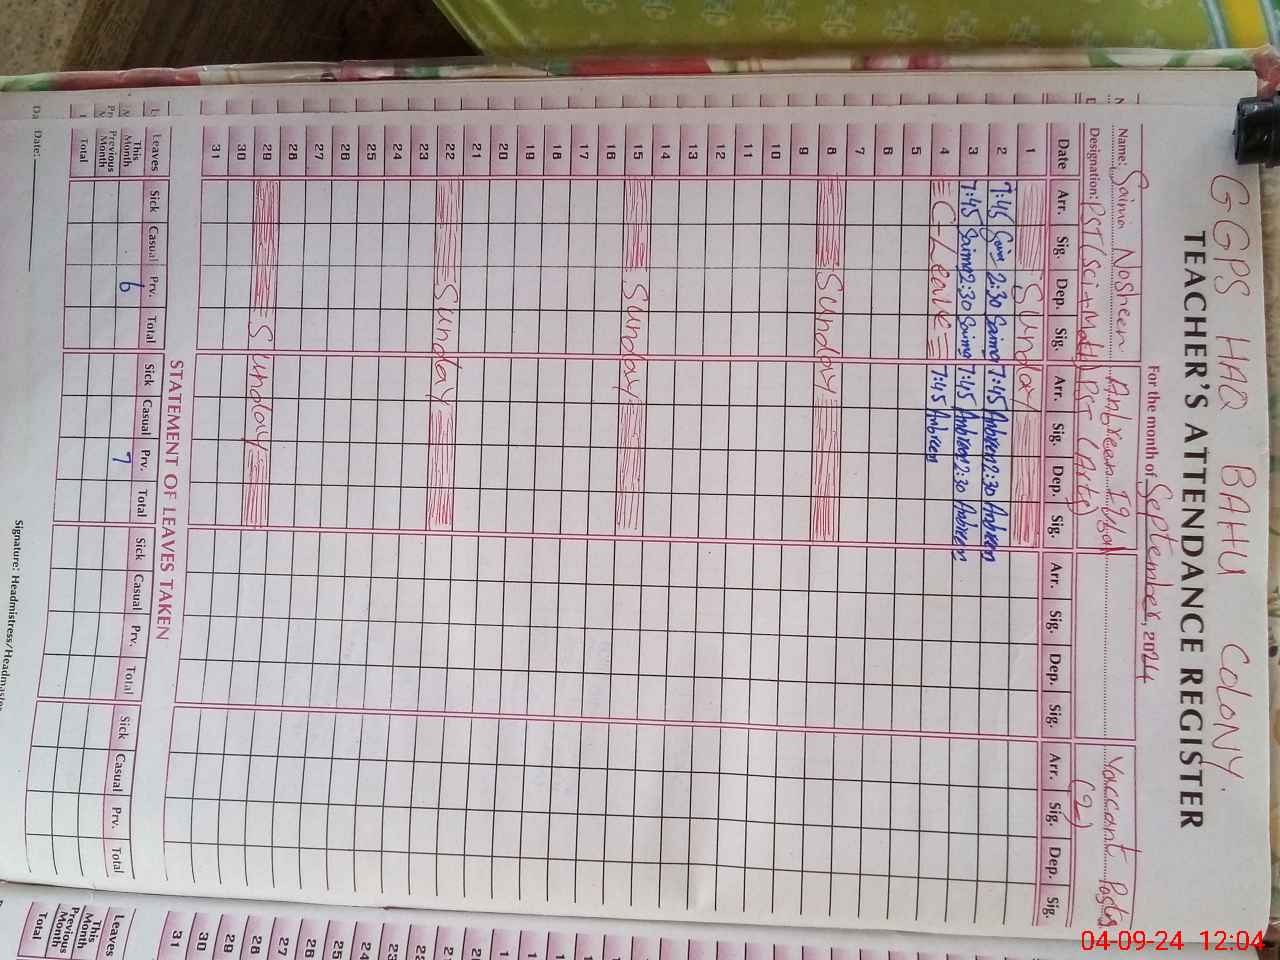 GGPS HAQ BAHU COLONY.
TEACHER'S ATTENDANCE REGISTER
For the month of September, 2024
Name: Saima Nosheen Ambreen Iqbal Vaccant Posts
Designation: PST (Sci+Math) PST (Arts) (2)
Date Arr. Sig. Dep. Sig. Arr. Sig. Dep. Sig. Arr. Sig. Dep. Sig. Arr. Sig. Dep. Sig.
1 Sunday
2 7:45 Saima 2:30 Saima 7:45 Ambreen 2:30 Ambreen
3 7:45 Saima 2:30 Saima 7:45 Ambreen 2:30 Ambreen
4 = C-Leave = 7:45 Ambreen
5
6
7
8 Sunday
9
10
11
12
13
14
15 Sunday
16
17
18
19
20
21
22 Sunday
23
24
25
26
27
28
29 Sunday
30
31
STATEMENT OF LEAVES TAKEN
Leaves Sick Casual Prv. Total Sick Casual Prv. Total Sick Casual Prv. Total Sick Casual Prv. Total
This Month 6 7
Previous Month
Total
Date:
Signature: Headmistress/Headmaster
Leaves
This Month
Previous Month
Total
31
30
29
28
27
26
25
24
23
22
21
20
04-09-24 12:04